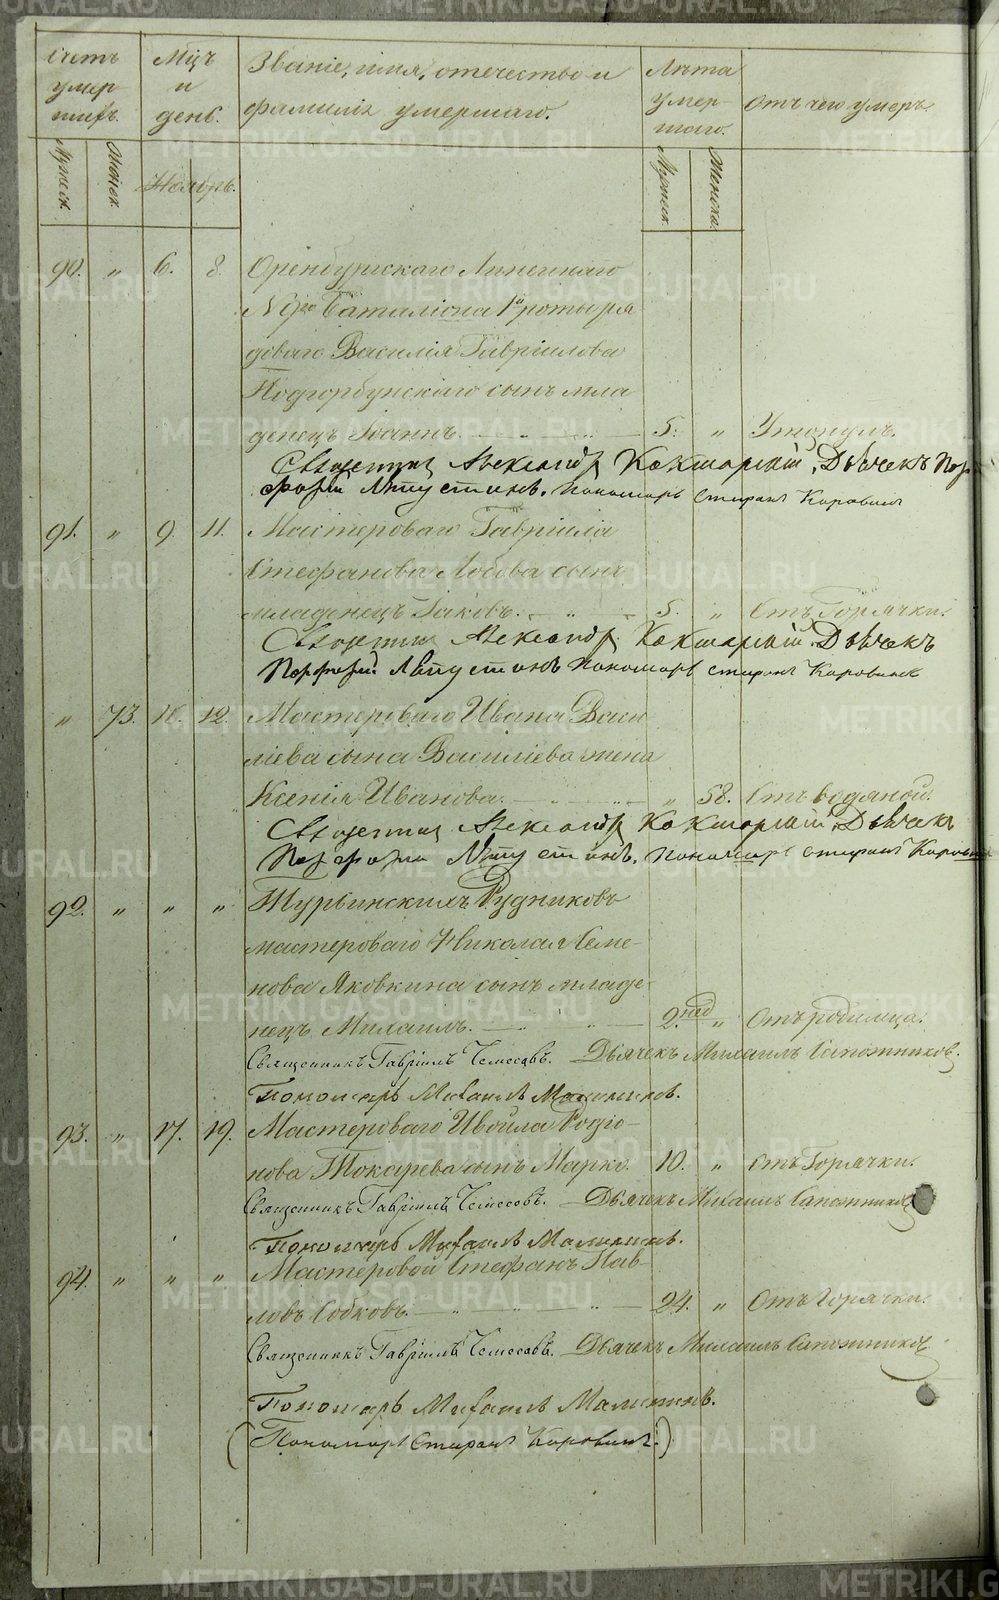 Счетъ умершихъ.
Мцъ и день.
Званіе, имя, отечество и фамилія умершаго.
Лѣта умершаго.
Отъ чего умеръ.
Мужеск.
Женск.
Ноябрь.
Мужеск.
Женска.
90. „ 6. 8. Оренбургскаго Линейнаго
Баталіона 1й роты ря
доваго Василія Гавріилова
Подгорбунскаго сынъ мла
денецъ Іоаннъ. 5. „ Утонулъ.
Священник Александр Кокшарскій, Дьячекъ Пор
фирій Ляпустинъ. Пономарь Стефан Коровин
91. „ 9. 11. Мастероваго Гавріила
Стефанова Лобова сынъ
младенецъ Іаковъ. 5. „ Отъ Горячки.
Священник Александр Кокшарскій. Дьячекъ
Порфирій Ляпустинъ Пономарь Стефанъ Коровинъ
„ 73. 10. 12. Мастероваго Ивана Васи
ліева сына Василіева жена
Ксенія Иванова. „ 58. Отъ водяной.
Священник Александр Кокшарскій, Дьячекъ
Порфирій Ляпустинъ. Пономарь Стефанъ Коровинъ
92. „ „ „ Турьинскихъ Рудниковъ
мастероваго Николая Семе-
нова Яковкина сынъ младе-
нецъ Михаилъ. 2. нед „ Отъ родимца.
Священникъ Гавріилъ Дьячекъ Михаилъ Сапожников.
Пономарь Михаилъ Малининъ.
93. „ 17. 19. Мастероваго Ивойла Родіо-
нова Токарева сынъ Марко. 10. „ Отъ Горячки.
Священникъ Гавріилъ Дьячекъ Михаилъ Сапожников
Пономарь Михаилъ Малининъ.
94. „ „ „ Мастеровой Стефанъ Пав-
ловъ Собковъ. 24. „ Отъ Горячки.
Священникъ Гавріилъ Дьячекъ Михаилъ Сапожников
Пономарь Михаилъ Малининъ.
(Пономарь Стефанъ Коровинъ.)
METRIKI.GASO-URAL.RU